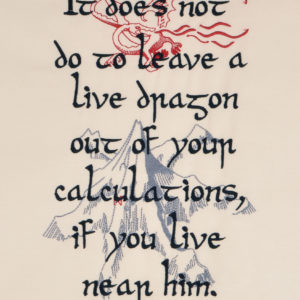 It does not
do to leave a
live dragon
out of your
calculations,
if you live
near him.